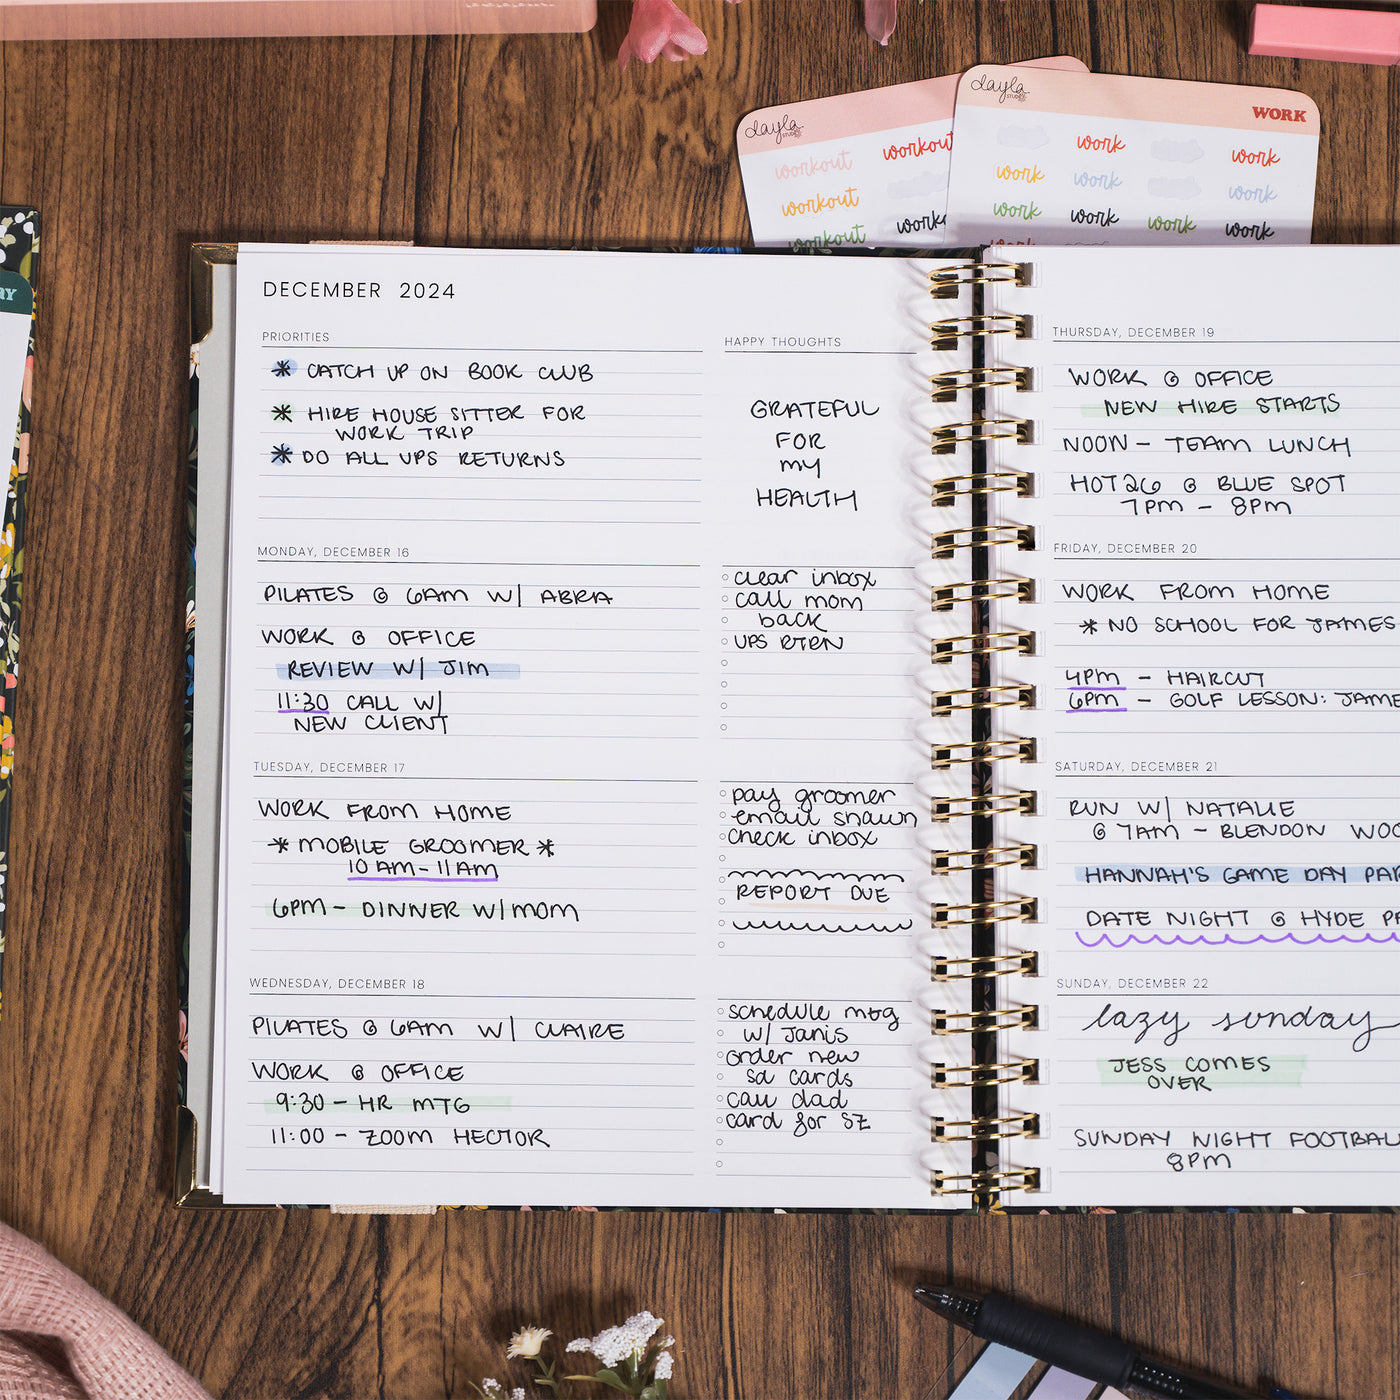 dayla
STUDIO
workout
workout
workout
workout
dayla
STUDIO
WORK
work
work
work
work
work
work
work
work
work
work
DECEMBER 2024
PRIORITIES
* CATCH UP ON BOOK CLUB
* HIRE HOUSE SITTER FOR
WORK TRIP
* DO ALL UPS RETURNS
HAPPY THOUGHTS
GRATEFUL
FOR
MY
HEALTH
MONDAY, DECEMBER 16
PILATES @ 6AM W/ ABRA
WORK @ OFFICE
REVIEW W/ JIM
11:30 CALL W/
NEW CLIENT
clear inbox
call mom
back
UPS RTRN
TUESDAY, DECEMBER 17
WORK FROM HOME
* MOBILE GROOMER *
10 AM - 11 AM
6PM - DINNER W/ MOM
pay groomer
email shawn
check inbox
REPORT DUE
WEDNESDAY, DECEMBER 18
PILATES @ 6AM W/ CLAIRE
WORK @ OFFICE
9:30 - HR MTG
11:00 - ZOOM HECTOR
schedule mtg
w/ Janis
order new
sd cards
call dad
card for SZ
THURSDAY, DECEMBER 19
WORK @ OFFICE
NEW HIRE STARTS
NOON - TEAM LUNCH
HOT 26 @ BLUE SPOT
7PM - 8PM
FRIDAY, DECEMBER 20
WORK FROM HOME
* NO SCHOOL FOR JAMES
4PM - HAIRCUT
6PM - GOLF LESSON: JAME
SATURDAY, DECEMBER 21
RUN W/ NATALIE
@ 7AM - BLENDON WOO
HANNAH'S GAME DAY PAR
DATE NIGHT @ HYDE PA
SUNDAY, DECEMBER 22
lazy sunday
JESS COMES
OVER
SUNDAY NIGHT FOOTBAL
8PM